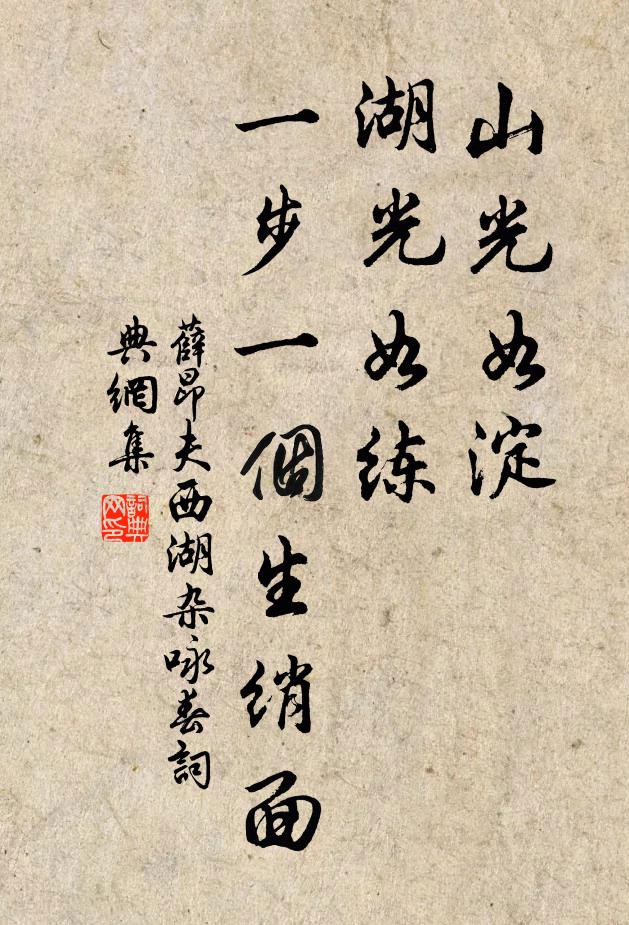 山光如淀
湖光如练
一步一個生绡面
薛昂夫西湖杂咏春詞
典網集
詞典网印